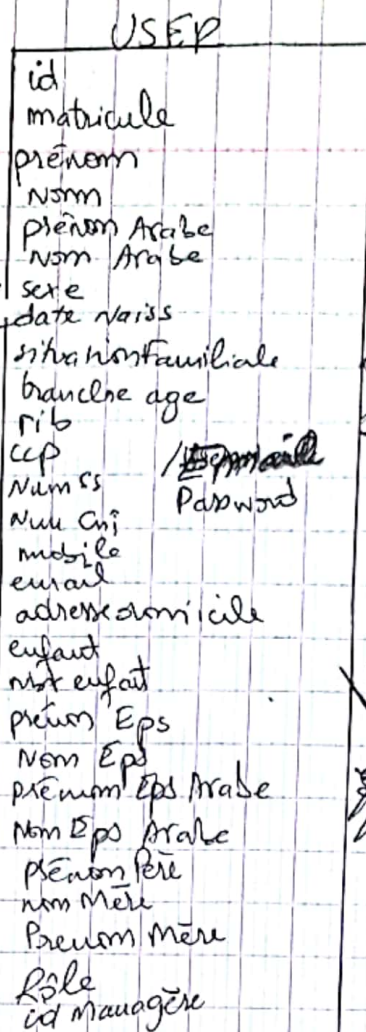 USER
id
matricule
prénom
Nom
prénom Arabe
Nom Arabe
sexe
date Naiss
situationFamiliale
tranche age
rib
ccp
Num ss
Password
Num Cni
mobile
email
adresse domicile
enfant
nbr enfant
prénom Eps
Nom Eps
prénom Eps Arabe
Nom Eps Arabe
prénom Père
nom Mère
Prenom Mère
Rôle
id Managère